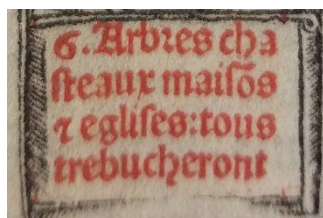 6. Arbꝛes cha
ſteaux maiſõs
⁊ egliſes: tous
trebucheront